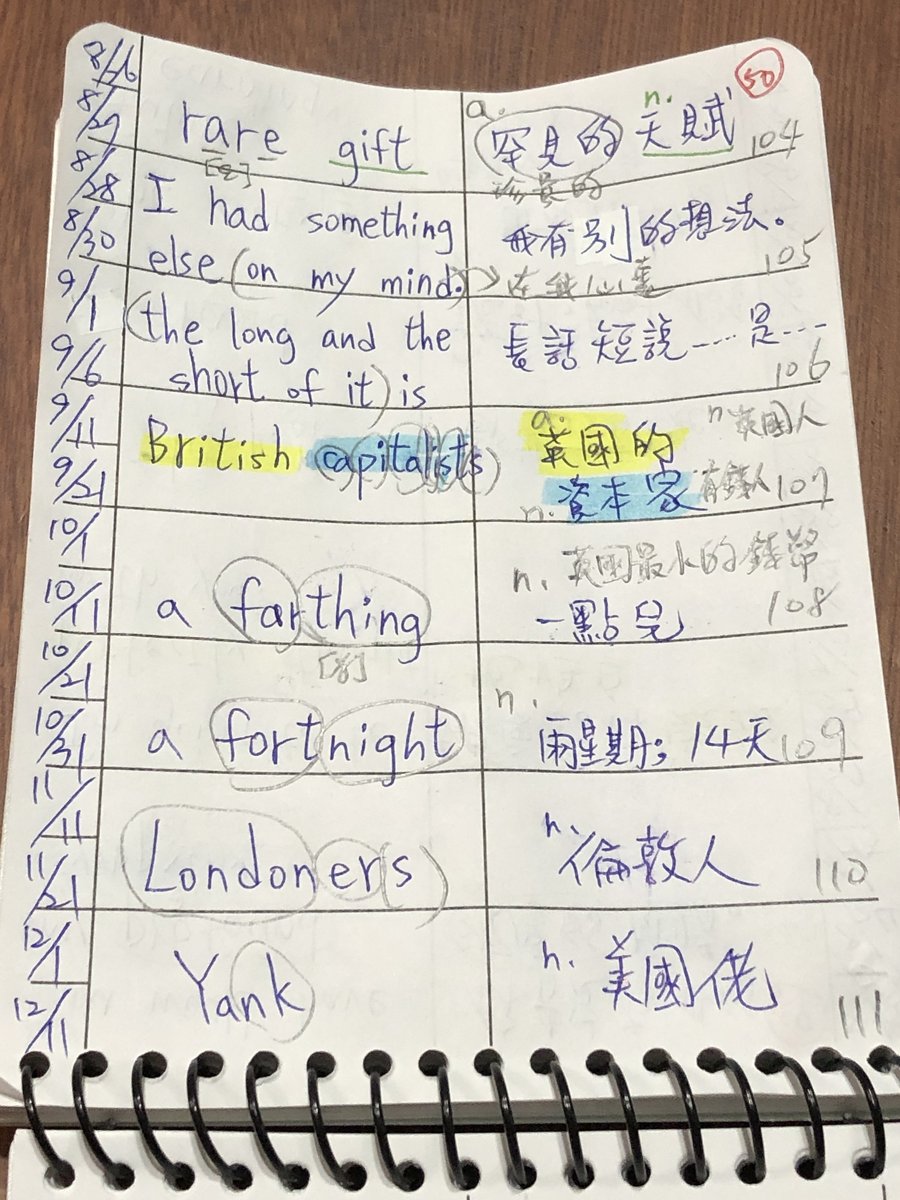 50
8/26
8/27
8/28
8/30
9/1
9/6
9/11
9/21
10/1
10/11
10/21
10/31
11/11
11/21
12/1
12/11
rare gift
a. n.
罕見的 天賦 104
珍貴的
I had something
else (on my mind.)
我有別的想法。
在我心裏 105
(the long and the
short of it) is
長話短說……是…
106
British capitalist(s)
a. 英國的 n.英國人
n. 資本家 有錢人 107
a farthing
n. 英國最小的錢幣
一點兒 108
a fortnight
n.
兩星期; 14天 109
Londoner(s)
n. 倫敦人 110
Yank
n. 美國佬 111